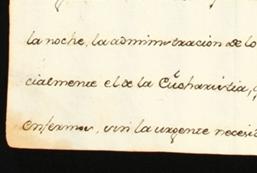 la noche, la adminiztración de lo
cialmente el de la Eucharistia,
enfermos, sin la urgente necesi